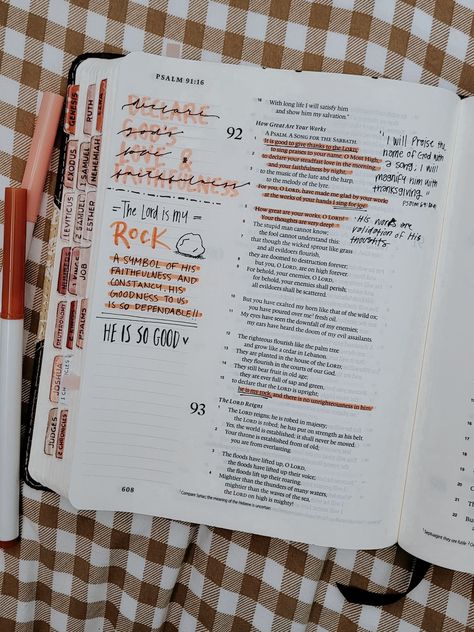 PSALM 91:16
DECLARE
declare
GOD'S
God's
LOVE &
love &
FAITHFULNESS
faithfulness
The Lord is my
ROCK
A SYMBOL OF HIS
FAITHFULNESS AND
CONSTANCY. HIS
GOODNESS TO US
IS SO DEPENDABLE!!
HE IS SO GOOD
16 With long life I will satisfy him
and show him my salvation."
How Great Are Your Works
92 A PSALM. A SONG FOR THE SABBATH.
It is good to give thanks to the LORD,
to sing praises to your name, O Most High;
2 to declare your steadfast love in the morning,
and your faithfulness by night,
3 to the music of the lute and the harp,
to the melody of the lyre.
4 For you, O LORD, have made me glad by your work;
at the works of your hands I sing for joy.
5 How great are your works, O LORD!
Your thoughts are very deep!
6 The stupid man cannot know;
the fool cannot understand this:
7 that though the wicked sprout like grass
and all evildoers flourish,
they are doomed to destruction forever;
8 but you, O LORD, are on high forever.
9 For behold, your enemies, O LORD,
for behold, your enemies shall perish;
all evildoers shall be scattered.
10 But you have exalted my horn like that of the wild ox;
you have poured over me fresh oil.
11 My eyes have seen the downfall of my enemies;
my ears have heard the doom of my evil assailants.
12 The righteous flourish like the palm tree
and grow like a cedar in Lebanon.
13 They are planted in the house of the LORD;
they flourish in the courts of our God.
14 They still bear fruit in old age;
they are ever full of sap and green,
15 to declare that the LORD is upright;
he is my rock, and there is no unrighteousness in him.
The LORD Reigns
93 The LORD reigns; he is robed in majesty;
the LORD is robed; he has put on strength as his belt.
Yes, the world is established; it shall never be moved.
2 Your throne is established from of old;
you are from everlasting.
3 The floods have lifted up, O LORD,
the floods have lifted up their voice;
the floods lift up their roaring.
4 Mightier than the thunders of many waters,
mightier than the waves of the sea,
the LORD on high is mighty!
608
1 Compare Syriac; the meaning of the Hebrew is uncertain
"I will praise the
name of God with
a song; I will
magnify him with
thanksgiving."
PSALM 69:30
His works are
validation of His
thoughts.
GENESIS
RUTH
EXODUS
1 SAMUEL
NEHEMIAH
LEVITICUS
2 SAMUEL
ESTHER
NUMBERS
JOB
PSALMS
JOSHUA
JUDGES
2 CHRONICLES